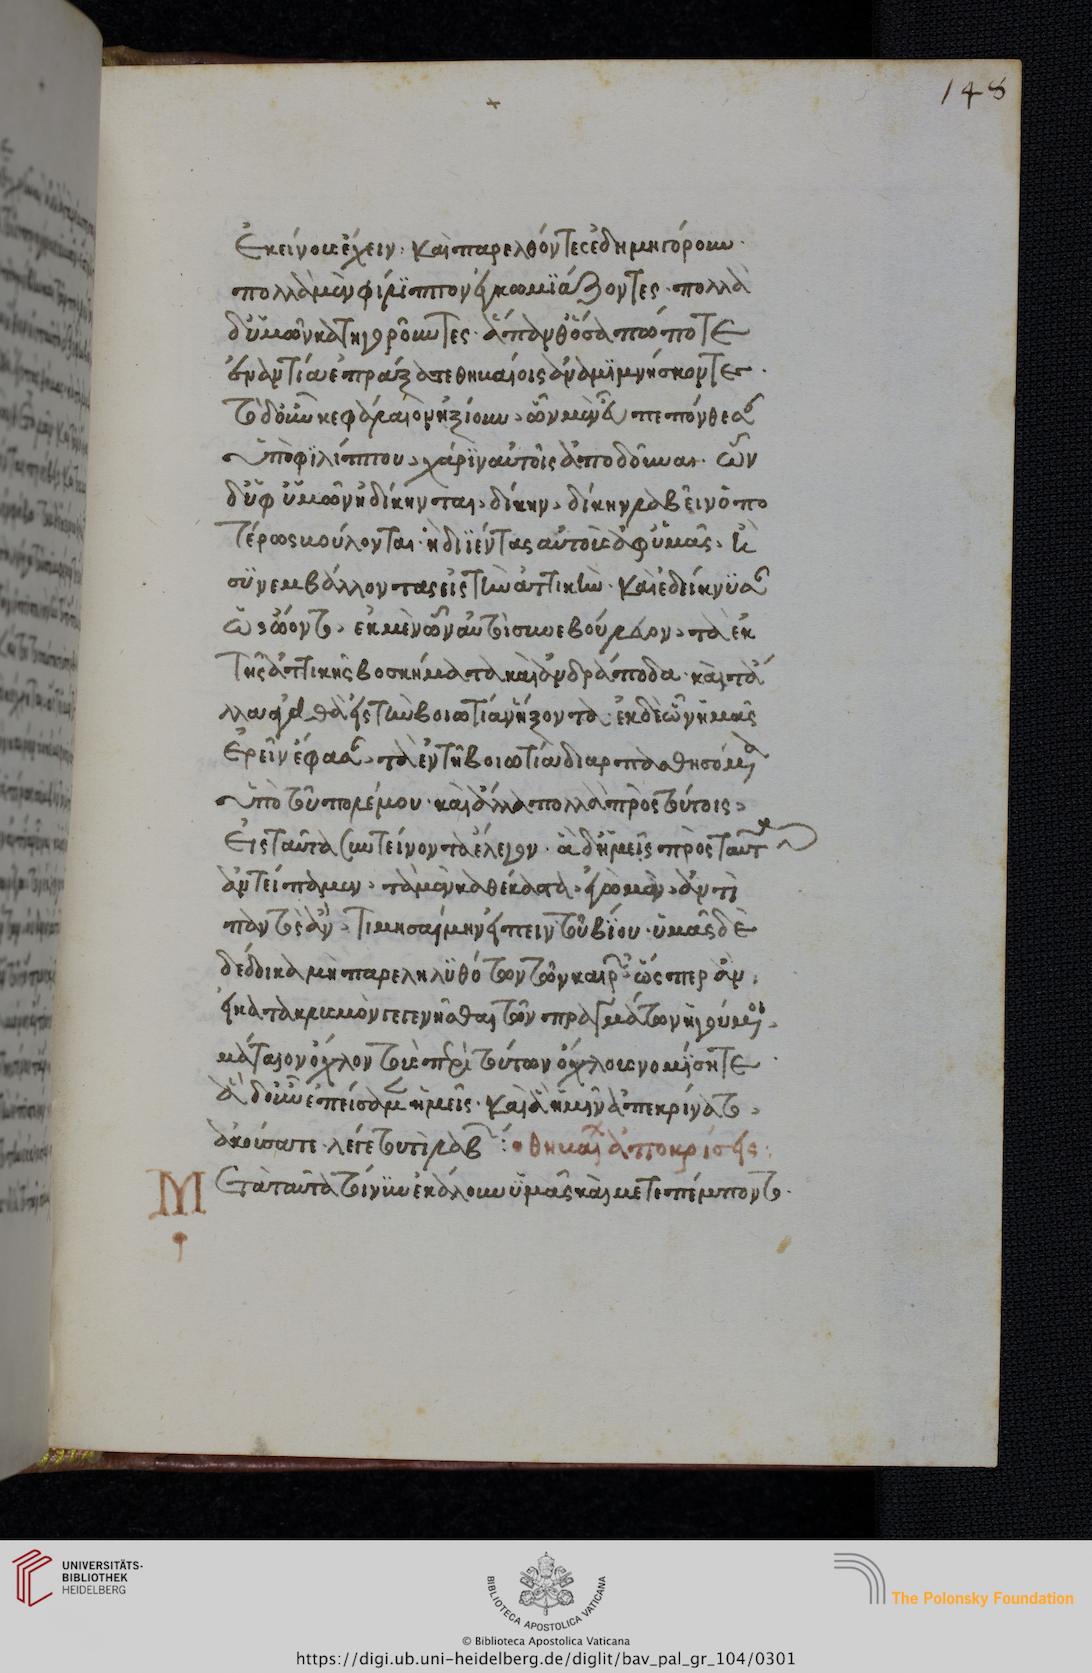 148
ἐκείνους ἔχειν· καὶ παρελθόντες ἐδημηγόρουν·
πολλὰ μὲν φίλϊππον ἐγκωμϊάζοντες· πολλὰ
δ' ὑμῶν κατηγοροῦντες· ἅπανθ' ὅσα πώποτε
ἐναντία ἐπράξατε θηβαίοις ἀναμϊμνήσκοντες·
τὸ δ' οὖν κεφάλαιον ἠξίουν, ὧν μὲν εὖ πεπόνθεσαν
ὑπὸ φϊλίππου, χάρϊν αὐτοὺς ἀποδοῦναι· ὧν
δ' ὑφ' ὑμῶν ἠδίκηνται, δίκην, δίκην λαβεῖν ὁπο
τέρως βούλονται· ἢ διϊέντας αὐτοὺς ἐφ' ὑμᾶς· ἢ
συνεμβάλλοντας εἰς τὴν ἀττικήν· καὶ ἐδείκνϋσαν
ὡς ᾤοντο, ἐκ μὲν ὧν αὐτοὶ συνεβούλευον, τὰ ἐκ
τῆς ἀττικῆς βοσκήματα καὶ ἀνδράποδα· καὶ τἄ
λλα ἀγαθὰ εἰς τὴν βοιωτίαν ἥξοντα· ἐκ δὲ ὧν ἡμᾶς
ἐρεῖν ἔφασαν, τὰ ἐν τῇ βοιωτία διαρπασθησόμενα
ὑπὸ τοῦ πολέμου· καὶ ἄλλα πολλὰ πρὸς τούτοις,
εἰς ταῦτα συντείνοντα ἔλεγον· ἃ δ' ἡμεῖς πρὸς ταῦτα
ἀντείπαμεν, τὰ μὲν καθέκαστα, ἐγὼ μὲν, ἀντὶ
παντὸς ἂν, τιμησαίμην εἰπεῖν τοῦ βϊου· ὑμᾶς δὲ
δέδοικα μὴ παρεληλϋθότων τῶν καιρῶν ὥσπερ ἂν,
εἰ κατακλυσμὸν γεγενῆσθαι τῶν πραγμάτων ἡγούμενοι,
μάταιον ὄχλον τοὺς περὶ τούτων λόγους νομίσητε·
ἃ δ' οὖν ἐπείσαμεν ἡμεῖς· καὶ ἃ ἡμῖν ἀπεκρίνατο,
ἀκούσατε· λέγε ταυτὶ λαβών: θηβαίων ἀπόκρισις:
Μετὰ ταῦτα τοίνϋν ἐκάλουν ὑμᾶς καὶ μετεπέμποντο·
UNIVERSITÄTS-
BIBLIOTHEK
HEIDELBERG
BIBLIOTECA APOSTOLICA VATICANA
The Polonsky Foundation
© Biblioteca Apostolica Vaticana
https://digi.ub.uni-heidelberg.de/diglit/bav_pal_gr_104/0301